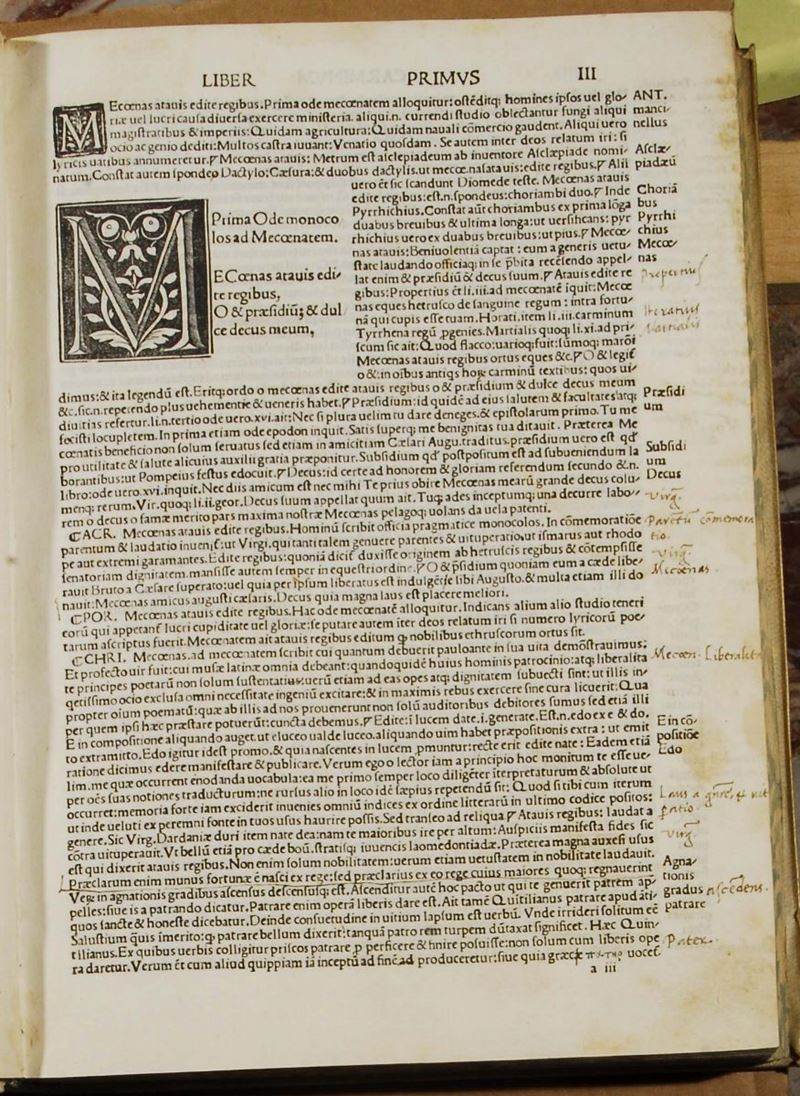 LIBER PRIMVS III
MEcœnas atauis edite regibus. Prima ode mecœnatem alloquitur: oſtēditq; homines ipſos uel glo⸗ ANT.
riæ uel lucri cauſa diuerſa exercere miniſteria. aliqui.n. currendi ſtudio oblectantur fungi aliqui manci⸗
magiſtratibus & imperiis: Quidam agricultura: Quidam nauali cōmercio gaudent. Aliqui uero nellus
ocio ac genio dediti: Multos caſtra iuuant: Venatio quoſdam. Se autem inter deos relatum iri: ſi
lyricis uatibus annumeretur. Mecœnas atauis: Metrum eſt aſclepiadeum ab inuentore Aſclæpiade nomi⸗ Aſclæ⸗
natum. Conſtat autem ſpondeo Dactylo: Cæſura: & duobus dactylis. ut mecœ.nas atauis: edite regibus. Alii piadæū
uero ēt ſic ſcandunt Diomede teſte. Mecœnas atauis
edite regibus: eſt.n. ſpondeus: choriambi duo. Inde Choriā
Pyrrhichius. Conſtat aūt choriambus ex prima lōga bus
duabus breuibus & ultima longa: ut uerſificans: pyr Pyrrhi
rhichius uero ex duabus breuibus: ut pius. Mecœ⸗ chius
nas atauis: Beniuolentiā captat: cum a generis uetu⸗ Mecœ⸗
ſtate laudando officiaq; in ſe p̄bita recēſendo appel⸗ nas
lat enim & præſidiū & decus ſuum. Atauis edite re
gibus: Propertius ēt li.iii. ad mecœnatē iquit: Mecœ
nas eques hetruſco de ſanguine regum: intra fortu⸗
nā qui cupis eſſe tuam. Horati. item li.iii. carminum
Tyrrhena regū progenies. Martialis quoq; li.xi. ad pri⸗
ſcum ſic ait: Quod flacco: uarioq; fuit: ſūmoq; maroi
Mecœnas atauis regibus ortus eques &c. O & legit
o &: in oībus antiqs horū carminū textibus: quos ui⸗
Prima Ode monoco
los ad Mecœnatem.
MECœnas atauis edi⸗
te regibus,
O & præſidiū; & dul
ce decus meum,
dimus: & ita legendū eſt. Eritq; ordo o mecœnas edite atauis regibus o & præſidium & dulce decus meum
&c. ſic.n. repetendo plus uehementiæ & ueneris habet. Præſidium: id quidē ad eius ſalutem & facultates atq; Præſidi
diuitias refertur. li.n. tertio ode uero.xvi. ait: Nec ſi plura uelim tu dare deneges. & epiſtolarum primo. Tu me um
feciſti locupletem. In prima etiam ode epodon inquit. Satis ſuperq; me benignitas tua ditauit. Præterea Me
cœnatis beneficio non ſolum ſeruatus ſed etiam in amicitiam Cæſari Augu. traditus. præſidium uero eſt qd'
pro utilitate & ſalute alicuius auxilii gratia præponitur. Subſidium qd' poſtpoſitum eſt ad ſubueniendum la Subſidi
borantibus: ut Pompeius feſtus edocuit. Decus: id certe ad honorem & gloriam referendum ſecundo &.n. um
libro: ode uero.xvi. inquit. Nec diis amicum eſt nec mihi Te prius obire Mecœnas mearū grande decus colu⸗ Decus
menq; rerum. Vir. quoq; li.ii. geor. Decus ſuum appellat quum ait. Tuq; ades inceptumq; una decurre labo⸗ virg.
rem o decus o famæ merito pars maxima noſtræ Mecœnas pelagoq; uolans da uela patenti.
ACR. Mecœnas atauis edite regibus. Hominū ſcribit officia pragmatice monocolos. In cōmemoratiōe
parentum & laudatio inuenit: ut Virgi. qui tanti talem genuere parentes & uituperatio. ut iſmarus aut rhodo
pe aut extremi garamantes. Edite regibus: quoniā dicit duxiſſe originem ab hetruſcis regibus & cōtempſiſſe virg.
ſenatoriam dignitatem. manſiſſe autem ſemper in equeſtri ordine. O & p̄ſidium quoniam eum a cæde libe⸗
rauit Bruto a Cæſare ſuperato: uel quia per ipſum liberatus eſt indulgētie ſibi Auguſto. & multa etiam illi do Mecœnas
nauit: Mecœnas amicus auguſti cæſaris. Decus quia magna laus eſt placere meliori.
POR. Mecœnas atauis edite regibus. Hac ode mecœnatē alloquitur. Indicans alium alio ſtudio teneri
eorū qui appetant lucri cupiditate uel gloriæ: ſe putare autem iter deos relatum iri ſi numero lyricorū poe⸗
tarum aſcriptus fuerit. Mecœnatem ait atauis regibus editum q; nobilibus ethruſcorum ortus ſit.
CHRI. Mecœnas. ad mecœnatem ſcribit cui quantum debuerit pauloante in ſua uita demōſtrauimus:
Et profecto uir fuit: cui muſæ latinæ omnia debeant: quandoquidē huius hominis patrocinio: atq; liberalita
te principes poetarū non ſolum ſuſtentatius: uerū etiam ad eas opes atq; dignitatem ſubuecti ſint: ut illis in⸗
quetiſſimo ocio excluſa omni neceſſitate ingeniū excitare: & in maximis rebus exercere ſine cura licuerit: Qua
propter oium poematū: quæ ab illis ad nos prouenerunt non ſolū auditoribus debitores ſumus ſed etiā illi
per quem ipſi hæc præſtare potuerūt: cuncta debemus. Edite: i lucem date. i. generate. Eſt.n. edo ex e & do.
E in compoſitione aliquando auget. ut eluceo ualde luceo. aliquando uim habet præpoſitionis extra: ut emit E in cō⸗
to extra mitto. Edo igitur ideſt promo. & quia naſcentes in lucem promuntur: recte erit edite nate: Eadem etiā poſitiōe
ratione dicimus edere manifeſtare & publicare. Verum ego o lector iam a principio hoc monitum te eſſe ue⸗ Edo
lim. me quæ occurrent enodanda uocabula: ea me primo ſemper loco diligēter iterpretaturum & abſolute ut
per oēs ſuas notiones traducturum: ne rurſus alio in loco idē ſæpius repetendū ſit: Quod ſi tibi cum iterum
occurret: memoria forte iam exciderit inuenies omniū indices ex ordine litterarū in ultimo codice poſitos:
ut inde ueluti ex peremni fonte in tuos uſus haurire poſſis. Sed tranſeo ad reliqua. Atauis regibus: laudat a
genere. Sic Virg. Dardaniæ duri item nate dea: nam te maioribus ire per altum: Auſpiciis manifeſta fides ſic
cōtra uituperauit. Vt bellū etiā pro cæde boū. ſtratiſq; iuuencis laomedontiadæ. Præterea magna auxeſi uſus virg.
eſt qui dixerit atauis regibus. Non enim ſolum nobilitatem: uerum etiam uetuſtatem in nobilitate laudauit.
Præclarum enim munus fortunæ ē naſci ex rege: ſed præclarius ex eo rege cuius maiores quoq; regnauerint Agna⸗
Verū in agnationis gradibus aſcenſus deſcenſuſq; eſt. Aſcenditur autē hoc pacto ut qui te genuerit patrem ap⸗ tionis
pelles: ſiue is a patrando dicatur. Patrare enim operā liberis dare eſt. Ait tamē Quitilianus patrare apud āti⸗ gradus
quos ſancte & honeſte dicebatur. Deinde conſuetudine in uitium lapſum eſt uerbū. Vnde irrideri ſolitum eē patrare
Saluſtium quis imerito: q; patrare bellum dixerit: tanquā patro rem turpem dūtaxat ſignificet. Hæc Quin⸗
tilianus. Ex quibus uerbis colligitur priſcos patrare p perficere & finire poſuiſſe: non ſolum cum liberis ope Pater.
ra daretur. Verum ēt cum aliud quippiam iā inceptū ad finē ad produceretur: ſiue quia græce uocet.
a iii